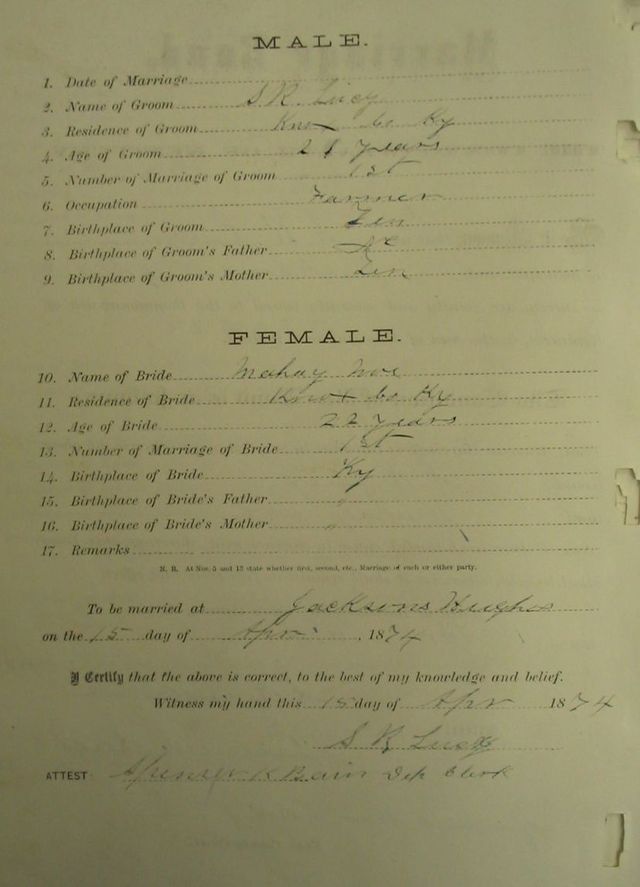 MALE.
1. Date of Marriage
2. Name of Groom S. R. Lucy
3. Residence of Groom Knox Co Ky
4. Age of Groom 21 years
5. Number of Marriage of Groom 1st
6. Occupation Farmer
7. Birthplace of Groom Ten
8. Birthplace of Groom's Father
9. Birthplace of Groom's Mother Ten
FEMALE.
10. Name of Bride Mahay
11. Residence of Bride Knox Co Ky
12. Age of Bride 22 years
13. Number of Marriage of Bride 1st
14. Birthplace of Bride Ky
15. Birthplace of Bride's Father "
16. Birthplace of Bride's Mother "
17. Remarks
N. B. At Nos. 5 and 13 state whether first, second, etc., Marriage of each or either party.
To be married at Jacksons Hughes
on the 15 day of Apr , 1874
I Certify that the above is correct, to the best of my knowledge and belief.
Witness my hand this 15 day of Apr 1874
S R Lucy
ATTEST K Bain Dep Clerk